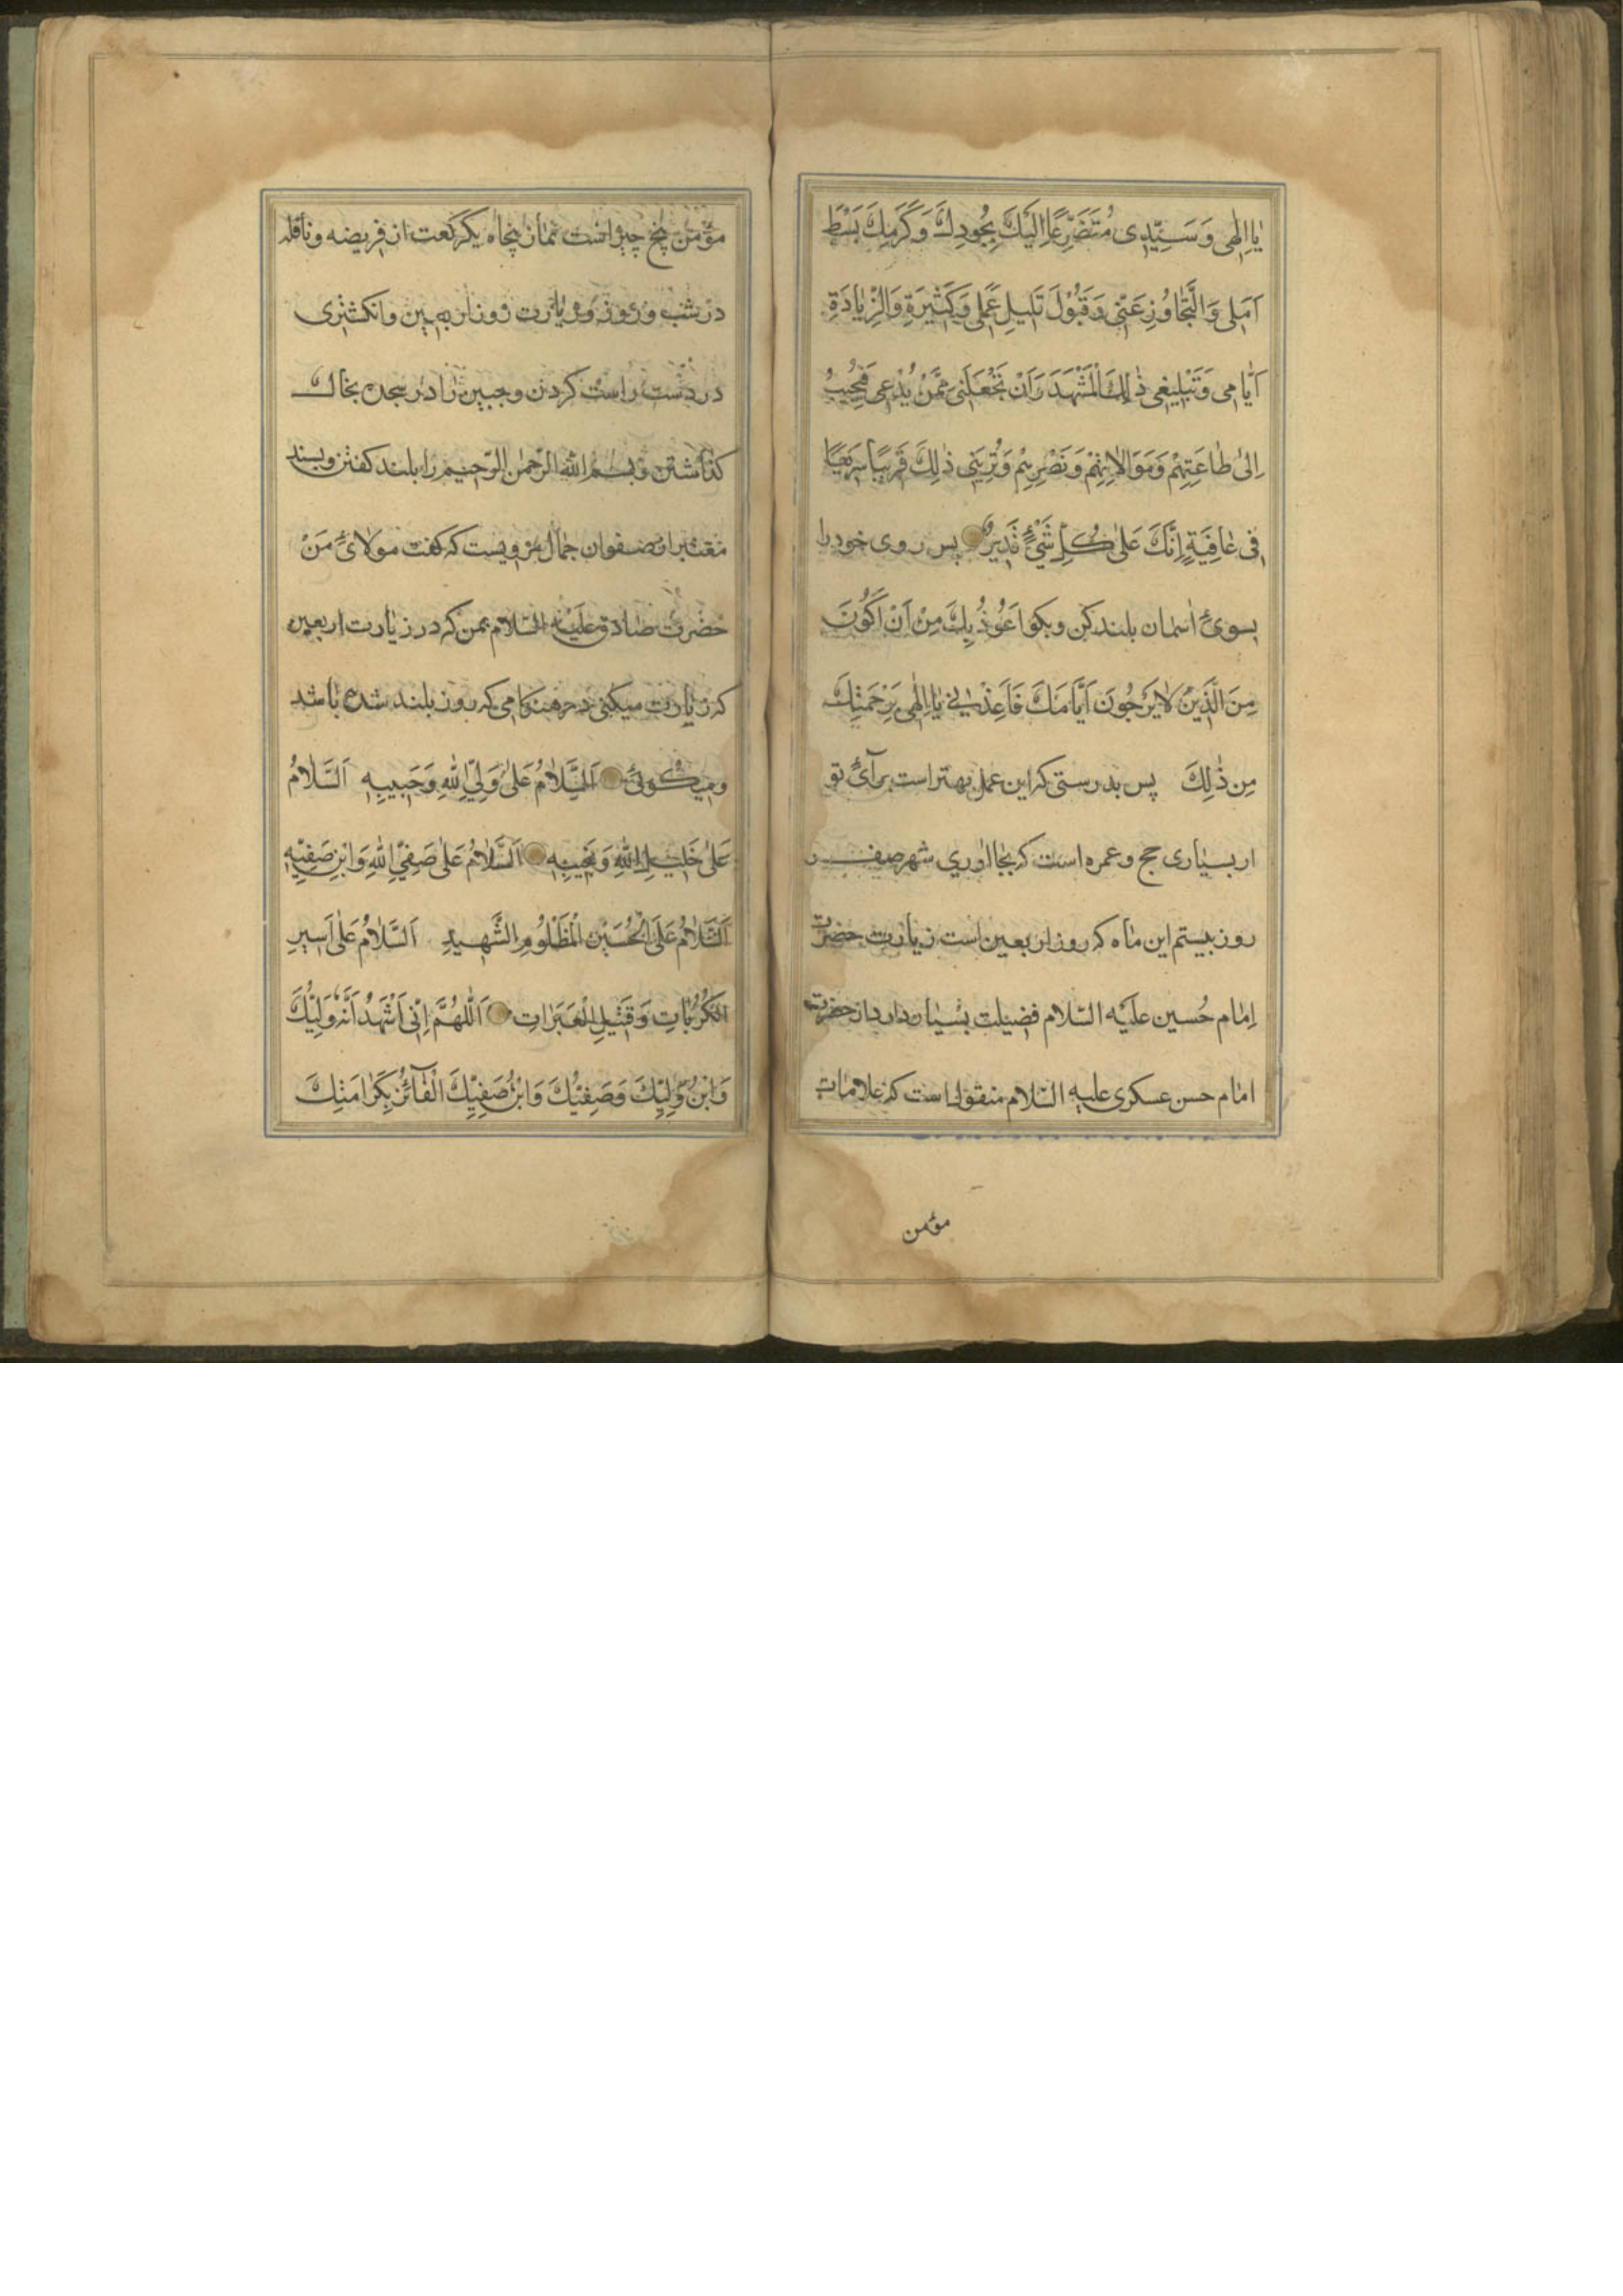 یٰا اِلٰهی وَ سَیِّدِی مُتَضَرِّعًا اِلَیْكَ بِجُودِكَ وَ كَرَمِكَ بَسْطَ
اَمَلی وَ التَّجٰاوُزِ عَنّی وَ قَبُوْلَ قَلیلِ عَمَلی وَ كَثیرَةِ وَ الزِّیٰادَةِ
اَیّٰامی وَ تَبْلیغی ذٰلِكَ الْمَشْهَدَ وَ اَنْ تَجْعَلَنی مِمَّنْ یُدْعی فَیُجیبُ
اِلیٰ طٰاعَتِهِمْ وَ مَوَالاتِهِمْ وَ نَصْرِهِمْ وَ تُرِیَنی ذٰلِكَ قَریبًا سَریعًا
فی عٰافِیَةٍ اِنَّكَ عَلیٰ كُلِّ شَیْءٍ قَدیرٌ پس روی خود را
بسویٔ اسمان بلند كن و بكو اَعُوْذُ بِكَ مِنْ اَنْ اَكُوْنَ
مِنَ الَّذینَ لٰا یَرْجُونَ اَیّٰامَكَ فَاَعِذْنی یٰا اِلٰهی بِرَحْمَتِكَ
مِن ذٰلِكَ پس بدرستی كه این عمل بهتر است برایٔ تو
از بسیاری حج و عمره است كه بجا اوری شهر صفر
روز بیستم این ماه كه روز اربعین است زیارت حضرت
اِمام حُسین علَیْه السّلام فضیلت بسیار دارد از حضرت
امام حسن عسكری علیه السّلام منقول است كه علامات
مؤمن
مؤمن پنج چیز است نماز پنجاه یكركعت از فریضه و نافله
در شب و روز و زیارت روز اربعین و انكشتری
در دست راست كردن و جبین را در سجده بخاك
كذاشتن و بسم الله الرّحمٰن الرّحیم را بلند كفتن و بسند
معتبر از صفوان جمال مرویست كه كفت مولایٔ مَنْ
حضرت صادق علَیْه السّلام بمن كه در زیارت اربعین
كه زیارت میكنی در هنكامی كه روز بلند شده باشد
و میكویٔ اَلسَّلاٰمُ عَلیٰ وَلِیِّ اللهِ وَ حَبیبِهِ اَلسَّلاٰمُ
عَلیٰ خَلیلِ اللهِ وَ نَجیبِهِ اَلسَّلاٰمُ عَلیٰ صَفِیِّ اللهِ وَ ابْنِ صَفِیِّهِ
اَلسَّلاٰمُ عَلَی الْحُسَیْنِ الْمَظْلُوْمِ الشَّهیدِ اَلسَّلاٰمُ عَلیٰ اَسیرِ
الْكُرُبٰاتِ وَ قَتیلِ الْعَبَرٰاتِ اَللّٰهُمَّ اِنّی اَشْهَدُ اَنَّهُ وَلِیُّكَ
وَ ابْنُ وَلِیِّكَ وَ صَفِیُّكَ وَ ابْنُ صَفِیِّكَ الْفٰآئِزُ بِكَرٰامَتِكَ